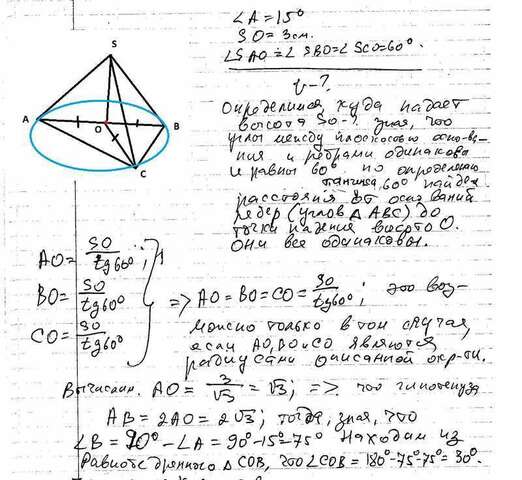 ∠A = 15°
SO = 3см.
∠SAO = ∠SBO = ∠SCO = 60°.
V-?
S
A
O
B
C
Определимся, куда падает
высота SO-? зная, что
углы между плоскостью основа-
ния и ребрами одинаковы
и равны 60° по определению
тангенса 60° найдем
расстояния от оснований
ребер (углов △ABC) до
точки падения высоты O.
Они все одинаковы.
AO = SO/tg60°;
BO = SO/tg60°
CO = SO/tg60°
=> AO = BO = CO = SO/tg60°; это воз-
можно только в том случае,
если AO, BO и CO являются
радиусами описанной окр-ти.
Вычислим. AO = 3/√3 = √3; => что гипотенуза
AB = 2AO = 2√3; тогда, зная, что
∠B = 90° - ∠A = 90° - 15° = 75° Находим из
Равнобедренного △COB, что ∠COB = 180° - 75° - 75° = 30°.